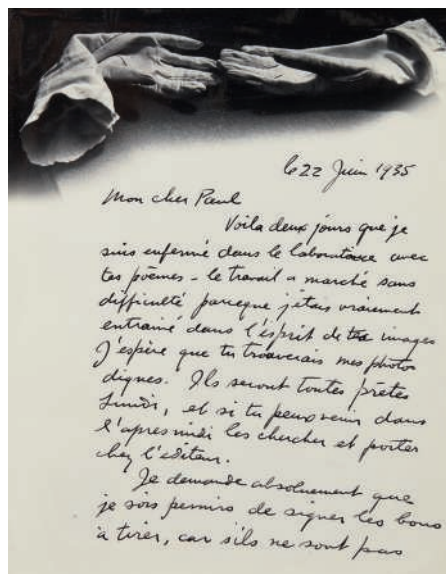 le 22 Juin 1935
Mon cher Paul
Voila deux jours que je
suis enfermé dans le laboratoire avec
tes poèmes - le travail a marché sans
difficulté parceque j'étais vraiment
entrainé dans l'ésprit de tes images
J'espère que tu trouverais mes photos
dignes. Ils seront toutes prêtes
Lundi, et si tu peux venir dans
l'apres midi les chercher et porter
chez l'editeur.
Je demande absoluement que
je sois permis de signer les bons
à tirer, car s'ils ne sont pas